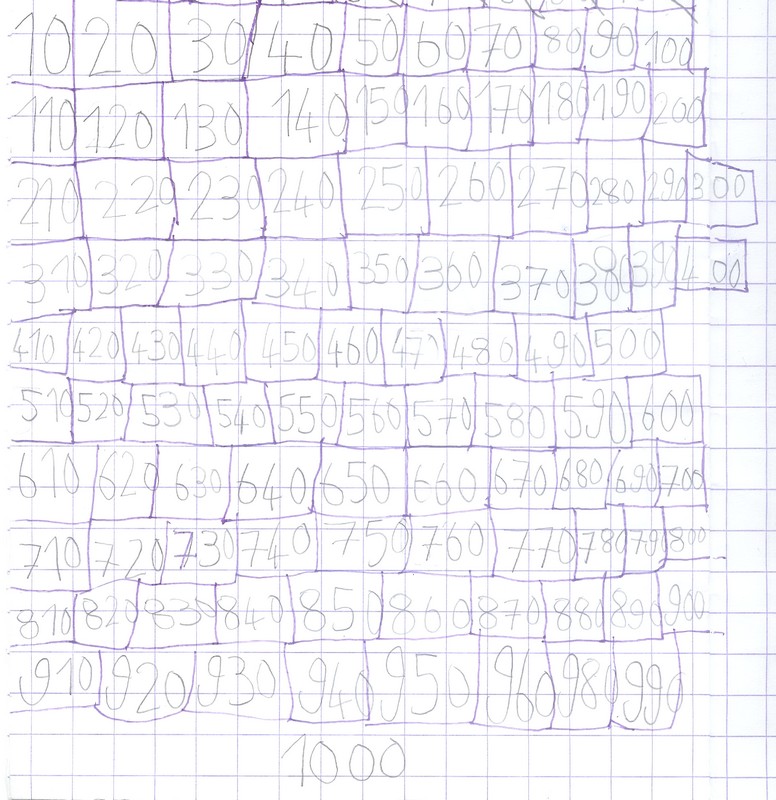 10 20 30 40 50 60 70 80 90 100
110 120 130 140 150 160 170 180 190 200
210 220 230 240 250 260 270 280 290 300
310 320 330 340 350 360 370 380 390 400
410 420 430 440 450 460 470 480 490 500
510 520 530 540 550 560 570 580 590 600
610 620 630 640 650 660 670 680 690 700
710 720 730 740 750 760 770 780 790 800
810 820 830 840 850 860 870 880 890 900
910 920 930 940 950 960 980 990
1000